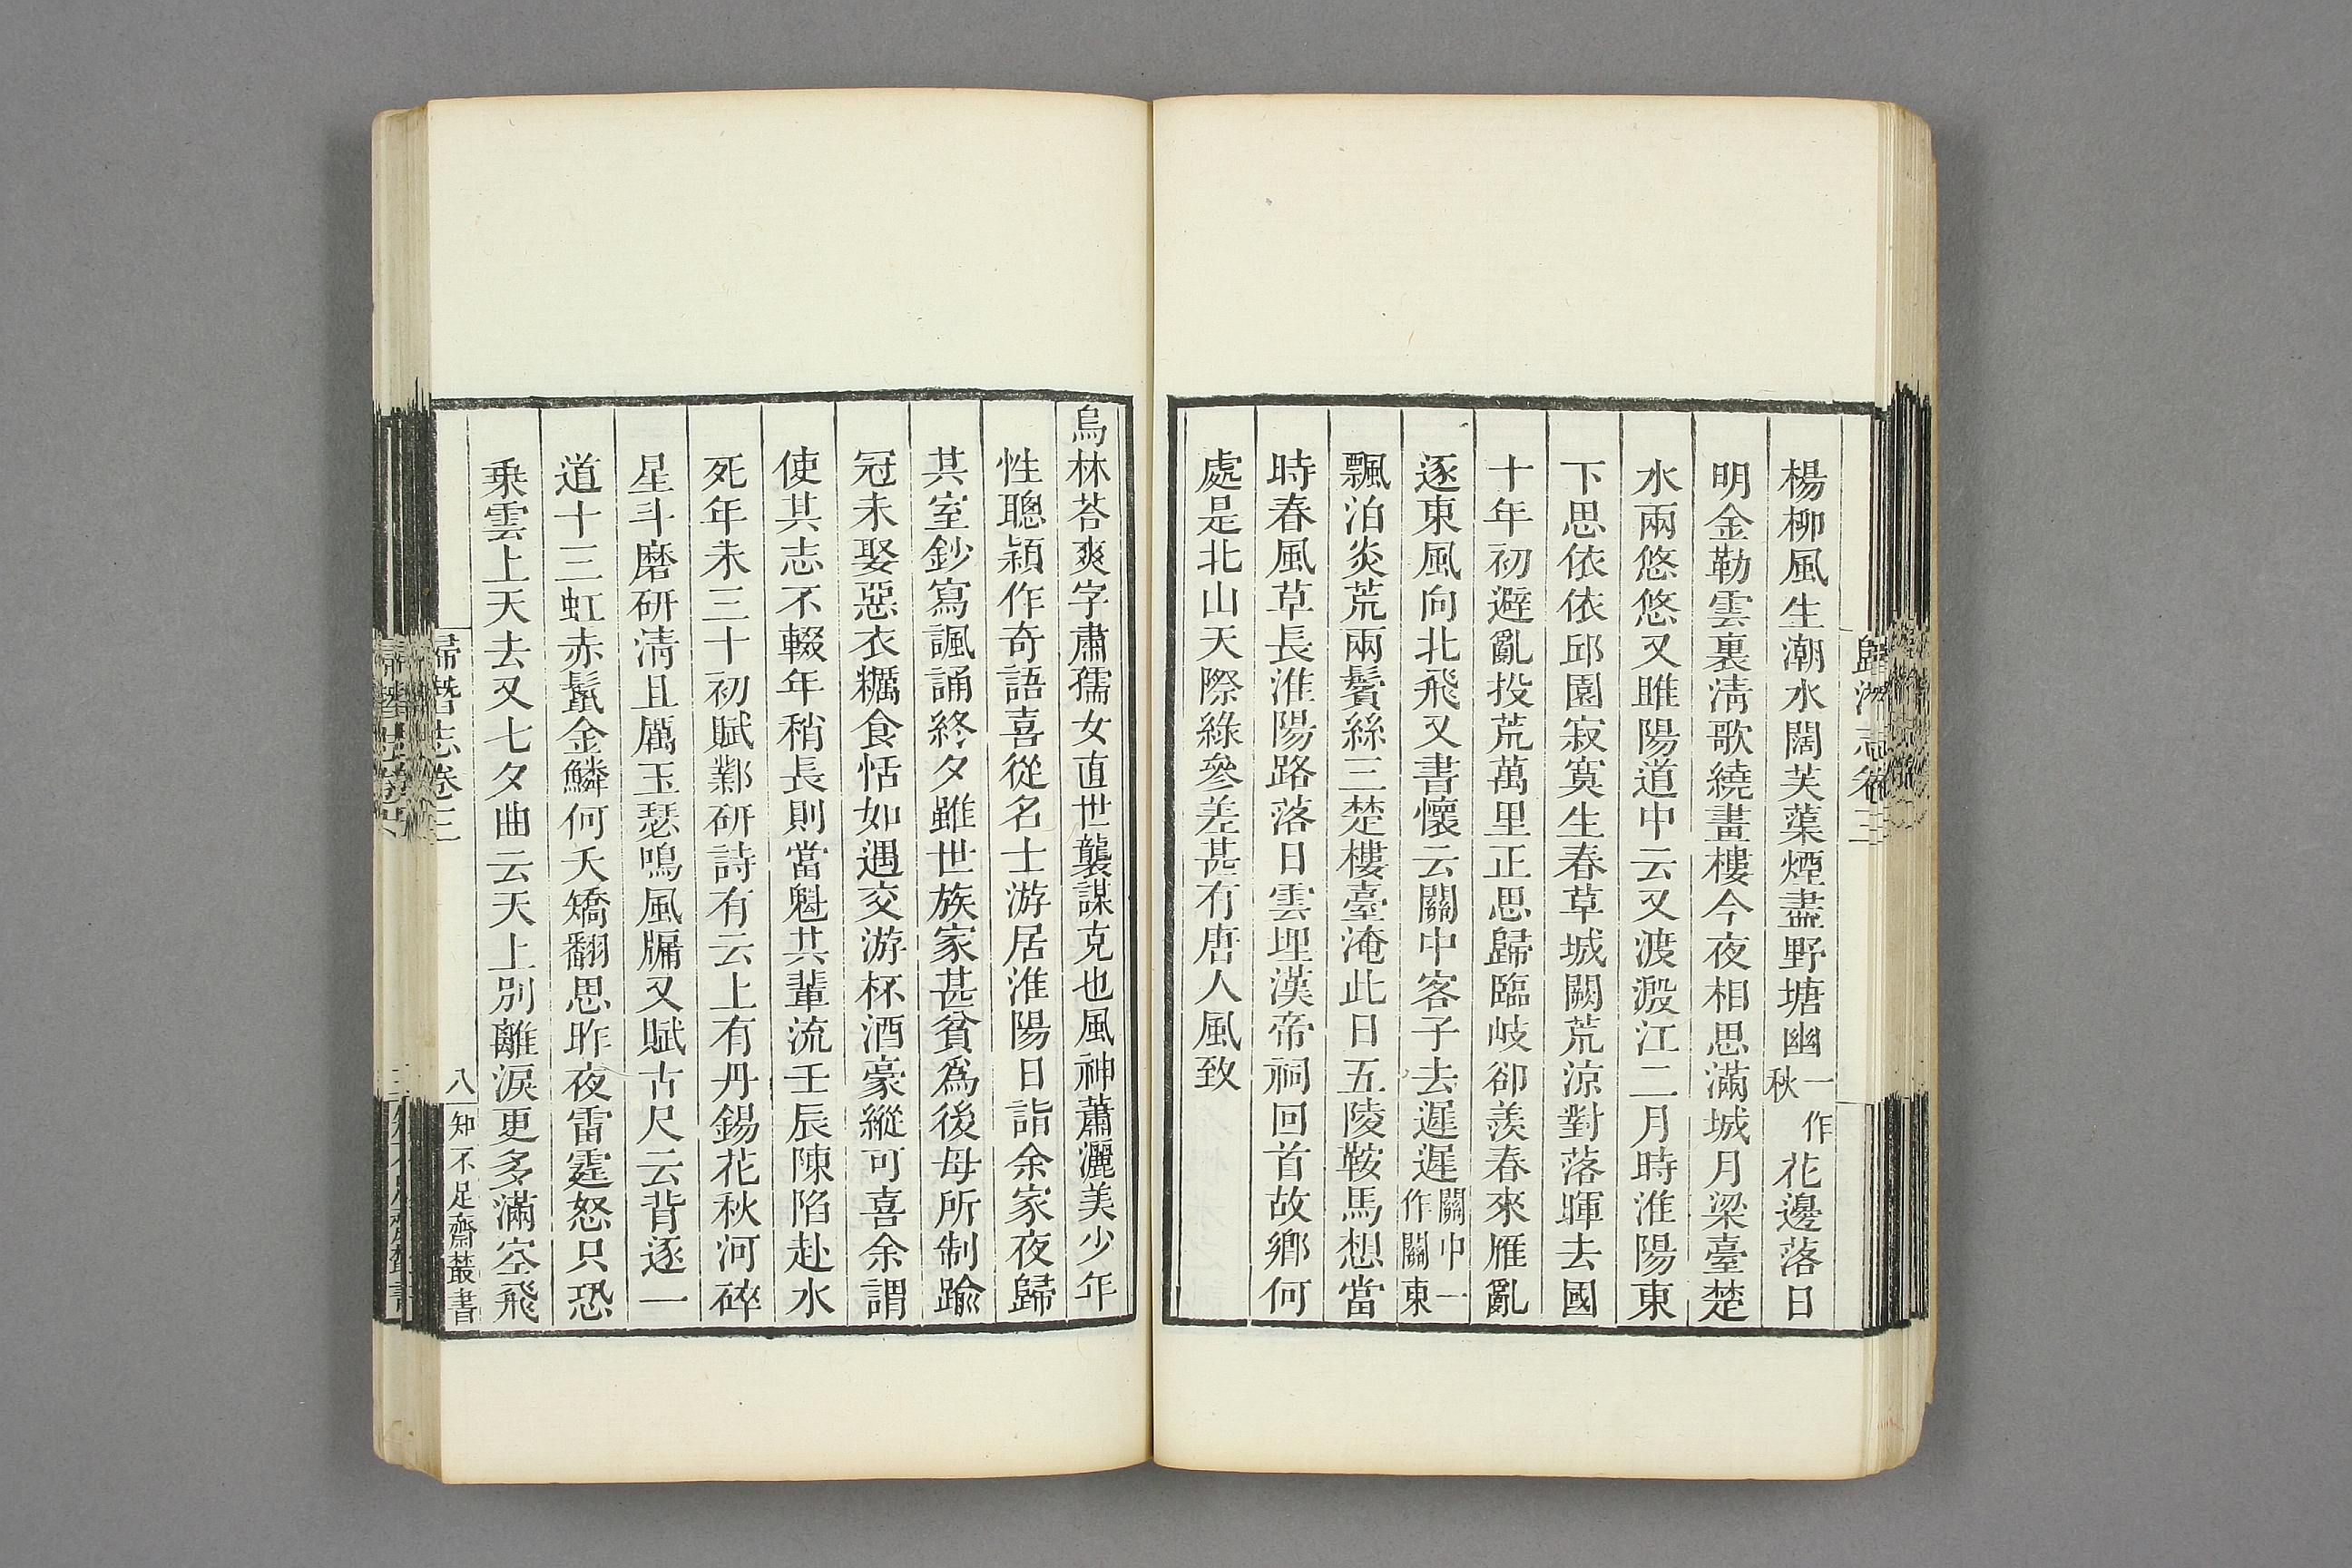 楊柳風生潮水闊芙蕖煙盡野塘幽一作秋花邊落日
明金勒雲裏淸歌繞畫樓今夜相思滿城月梁臺楚
水兩悠悠又睢陽道中云又渡㶏江二月時淮陽東
下思依依邱園寂寞生春草城闕荒涼對落暉去國
十年初避亂投荒萬里正思歸臨岐卻羨春來雁亂
逐東風向北飛又書懷云關中客子去遲遲關中一作關東
飄泊炎荒兩鬢絲三楚樓臺淹此日五陵鞍馬想當
時春風草長淮陽路落日雲埋漢帝祠回首故鄉何
處是北山天際綠參差甚有唐人風致
烏林荅爽字肅孺女直世襲謀克也風神蕭灑美少年
性聰穎作奇語喜從名士游居淮陽日詣余家夜歸
其室鈔寫諷誦終夕雖世族家甚貧爲後母所制踰
冠未娶惡衣糲食恬如遇交游杯酒豪縱可喜余謂
使其志不輟年稍長則當魁其輩流壬辰陳陷赴水
死年未三十初賦鄴研詩有云上有丹錫花秋河碎
星斗磨研淸且厲玉瑟鳴風牖又賦古尺云背逐一
道十三虹赤鬣金鱗何夭矯翻思昨夜雷霆怒只恐
乘雲上天去又七夕曲云天上別離淚更多滿空飛
歸潛志卷三
八
知不足齋叢書